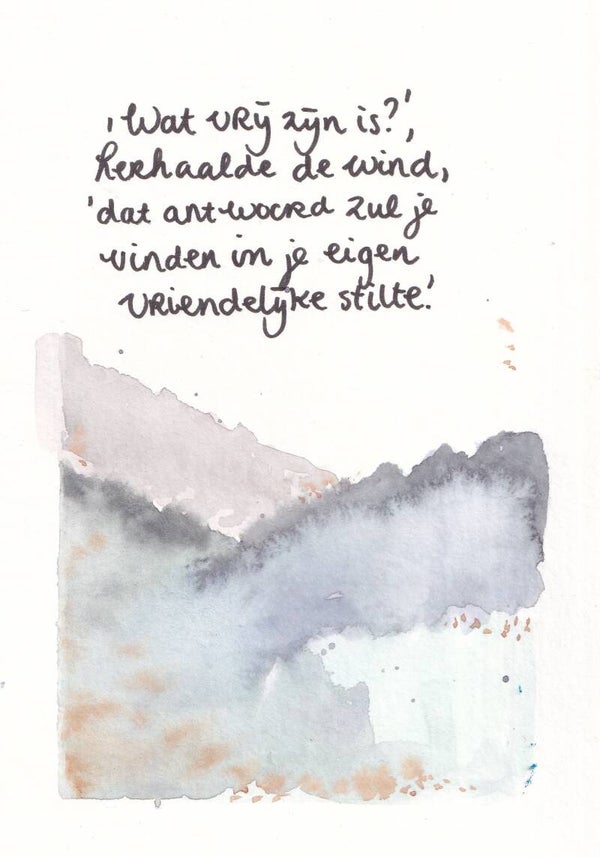 ‚Wat vrij zijn is?',
herhaalde de wind,
'dat antwoord zul je
vinden in je eigen
vriendelijke stilte.'